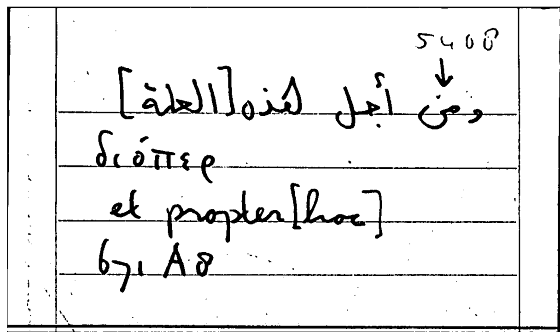 5408
ومن أجل هذه [العلة]
διόπερ
et propter [hoc]
671 A8